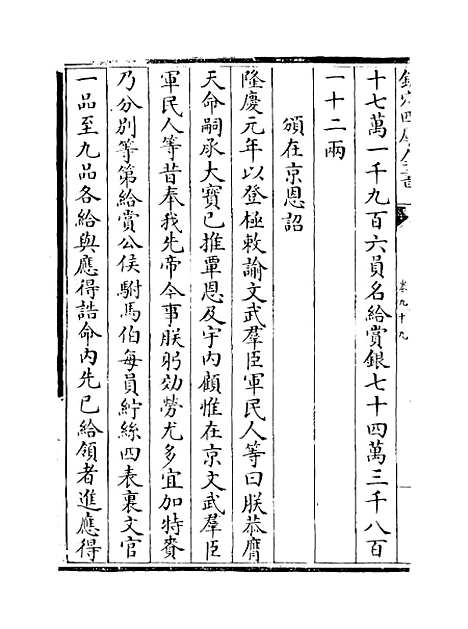 欽定四庫全書
卷九十九
十七萬一千九百六員名給賞銀七十四萬三千八百
一十二兩
頒在京恩詔
隆慶元年以登極敕諭文武羣臣軍民人等曰朕恭膺
天命嗣承大寶已推覃恩及宇內顧惟在京文武羣臣
軍民人等昔奉我先帝今事朕躬効勞尤多宜加特賚
乃分別等第給賞公侯駙馬伯每員紵絲四表裏文官
一品至九品各給與應得誥命內先已給領者進應得